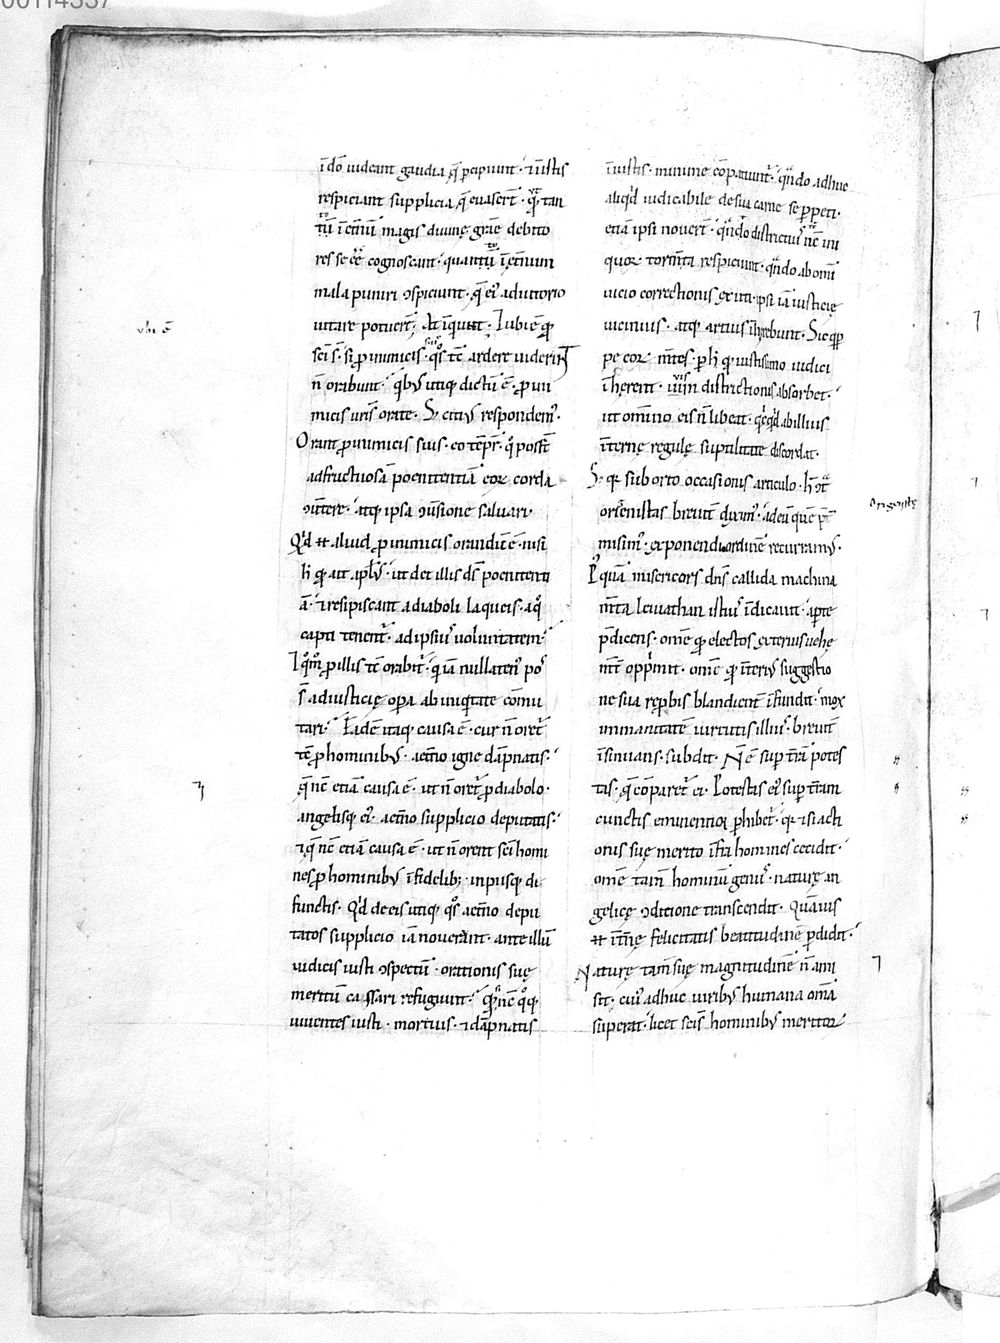 00114337
ī dō uideant gaudia q̄ percipiunt · ⁊ iniustis
respiciant supplicia q̄ euaserunt̄ · q̄r tan
tū ī etnū magis diuinę grāe debito
res se ee cognoscant · quantū ī etnum
mala puniri ɔspiciunt · q̄ eiꝰ adiutorio
uitare potuerunt̄ · At inquiunt · Vbi ē q̄
sci s̄ · si p̄ inimicis suis q̄s tc̄ ardere uiderint
n̄ orabunt · q̄bꝰ utiq; dictū ē · p̄ ini
micis uris orate · S; citiꝰ respondemꝰ ·
Orant p̄ inimicis suis · eo tēpr̄ · q̄ poss̄t
ad fructuosā poenitentiā eoꝝ corda
ɔuertere · atq; ipsa ɔuersione saluari ·
Qd̄ ⁊ aliud p̄ inimicis orandū ē · nisi
h̄ q̄ ait aplꝰ · ut det illis ds̄ poenitenti
ā · ⁊ resipiscant a diaboli laqueis · a q̄
capti tenent̄ · ad ipsiꝰ uoluntatem ·
⁊ q̄m̄ p̄ illis tc̄ orabit̄ · q̄ iā nullatenꝰ pos
s̄ ad iusticię opera ab iniquitate cōmu
tari · Eadē itaq; causa ē · cur n̄ oret̄
tc̄ p̄ hominibꝰ · aeterno igne dāpnatis ·
q̄ nc̄ etiā causa ē · ut n̄ oret̄ p̄ diabolo ·
angelisq; eiꝰ · aeterno supplicio deputatis ·
⁊ q̄ nc̄ etiā causa ē · ut n̄ orent sci homi
nes p̄ hominibꝰ īfidelib; · inpiisq; de
functis · Qd̄ de eis utiq; q̄s aeterno depu
tatos supplicio iā nouerant · ante illū
iudicis iusti ɔspectū · orationis suę
meritū cassari refugiunt · Q̄ si nc̄ q̄q;
uiuentes iusti · mortuis · ⁊ dāpnatis
īiustis · minime cōpatiunt̄ · q̄ndo adhuc
aliqd̄ iudicabile de sua carne se perpeti ·
etiā ipsi nouerunt̄ · q̄nto districtiꝰ tc̄ ini
quoꝝ tormenta respiciunt · q̄ndo ab omī
uicio corruptionis exuti · ipsi iā iusticię
uiciniꝰ · atq; artiꝰ īhęrebunt · Sic q̄p
pe eoꝝ mentes · per h̄ q̄ iustissimo iudici
īhęrent · uis districtionis absorbet ·
ut omnino eis n̄ libeat · q̄cq̄d ab illius
īternę regulę suptilitate discordat ·
S; q̄ suborto occasionis articulo · h̄ ɔtra
origenistas breuit̄ diximꝰ · ad eū quē p̄
misimꝰ · exponendi ordinē recurramꝰ ·
Pꝰquā misericors dns̄ callida machina
menta leuiathan istiꝰ īdicauit · aperte
p̄dicens · omē q̄ electos exteriꝰ uehe
ment̄ opp̄mit · omē q̄ īteriꝰ suggestio
ne sua reprobis blandient̄ īfundit · mox
immanitatē uirtutis illiꝰ · breuit̄
īsinuans · subdit · Nō ē super terrā potes
tas · q̄ cōparet̄ ei · Potestas eiꝰ super terram
cunctis eminentior perhibet̄ · q̄ ⁊ si acti
onis suę merito īfra homines cecidit ·
omē tam̄ hominū genꝰ · naturę an
gelicę ɔditione transcendit · Quāuis
⁊ īternę felicitatis beatitudinē perdidit ·
Naturę tam̄ suę magnitudinē n̄ ami
sit · cuiꝰ adhuc uiribꝰ humana omā
superat · licet scis hominibꝰ meritoꝝ